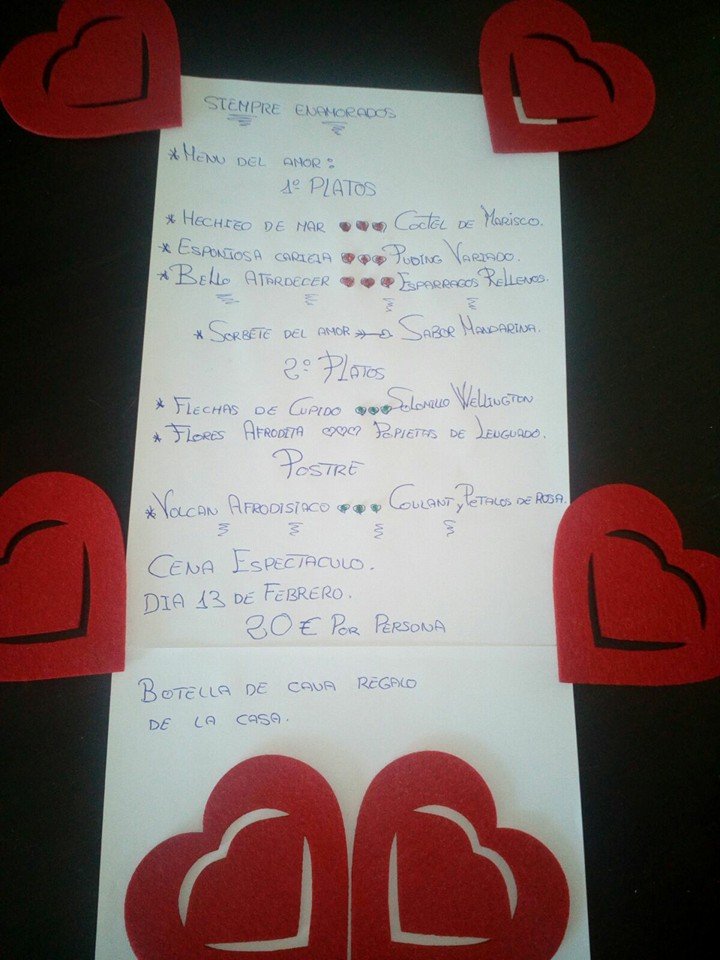 SIEMPRE ENAMORADOS
* MENU DEL AMOR:
1º PLATOS
* HECHIZO DE MAR COCTEL DE MARISCO.
* ESPONJOSA CARICIA PUDING VARIADO.
* BELLO ATARDECER ESPARRAGOS RELLENOS.
* SORBETE DEL AMOR SABOR MANDARINA.
2º PLATOS
* FLECHAS DE CUPIDO SOLOMILLO WELLINGTON
* FLORES AFRODITA POPIETAS DE LENGUADO.
POSTRE
* VOLCAN AFRODISIACO COULANT Y PETALOS DE ROSA.
CENA ESPECTACULO.
DIA 13 DE FEBRERO.
€ POR PERSONA
BOTELLA DE CAVA REGALO
DE LA CASA.